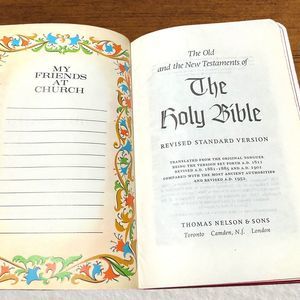 MY
FRIENDS
AT
CHURCH
The Old
and the New Testaments of
The
Holy Bible
REVISED STANDARD VERSION
TRANSLATED FROM THE ORIGINAL TONGUES
BEING THE VERSION SET FORTH A.D. 1611
REVISED A.D. 1881-1885 AND A.D. 1901
COMPARED WITH THE MOST ANCIENT AUTHORITIES
AND REVISED A.D. 1952.
THOMAS NELSON & SONS
Toronto Camden, N.J. London